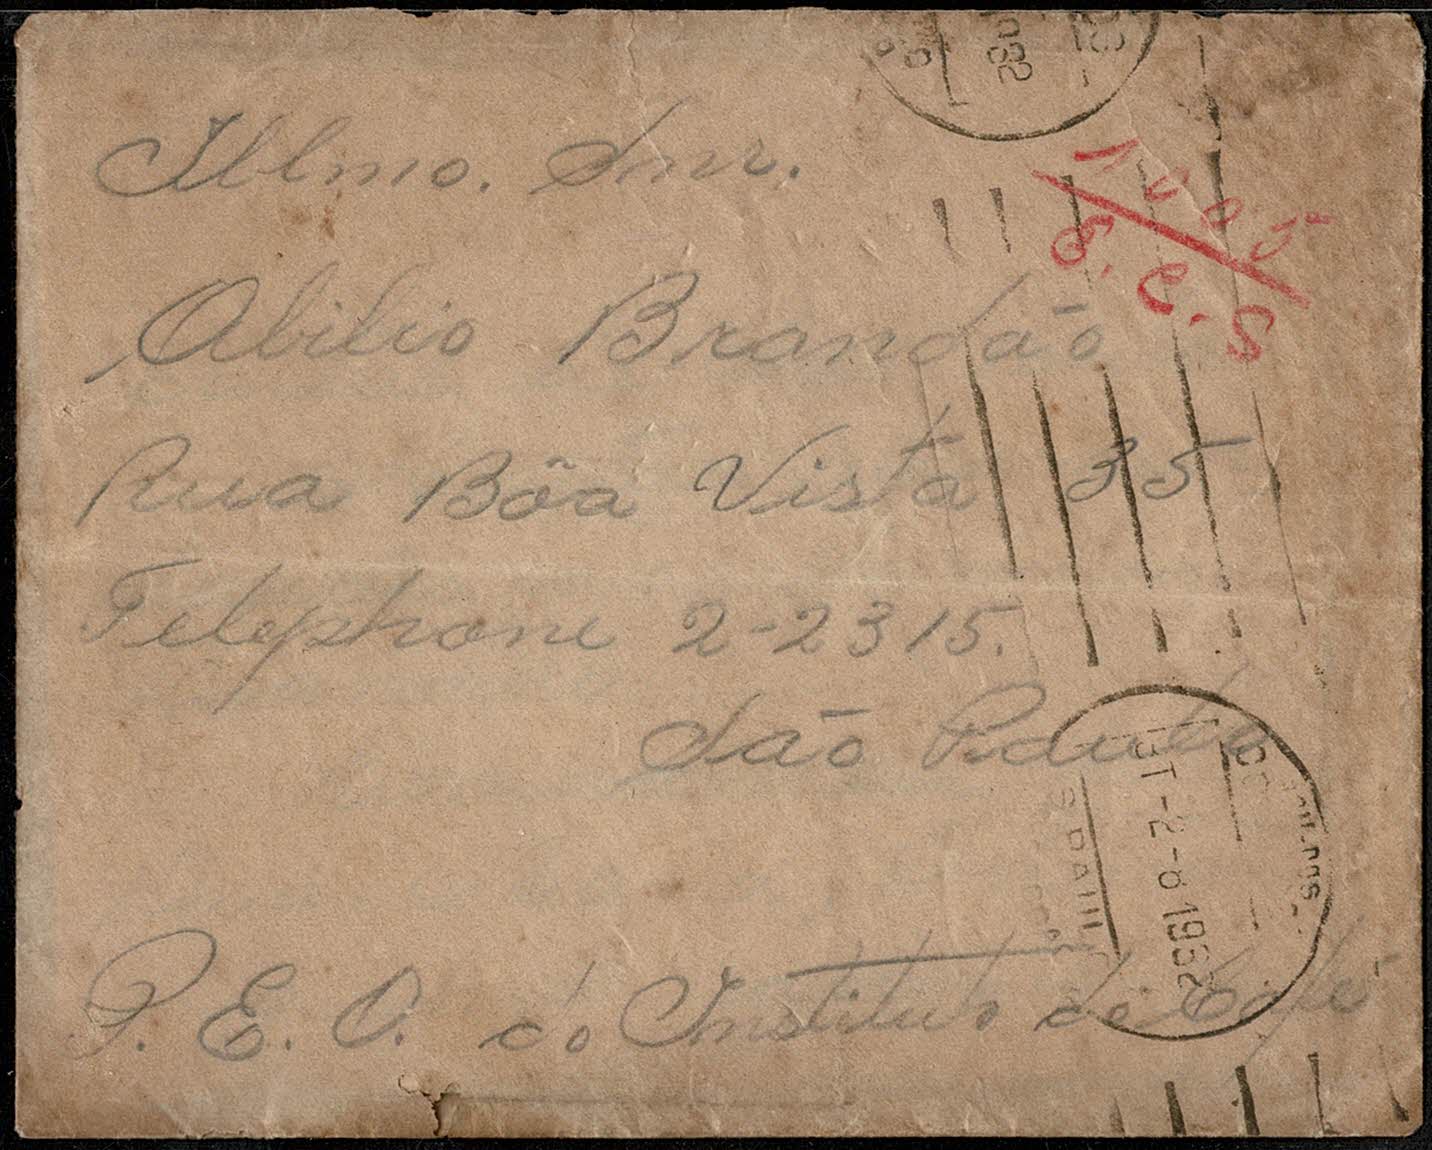 Illmo. Snr.
Abilio Brandão
Rua Bôa Vista 35
Telephone 2-2315.
São Paulo
P. E. O. do Instituto de Café
2-8 1932